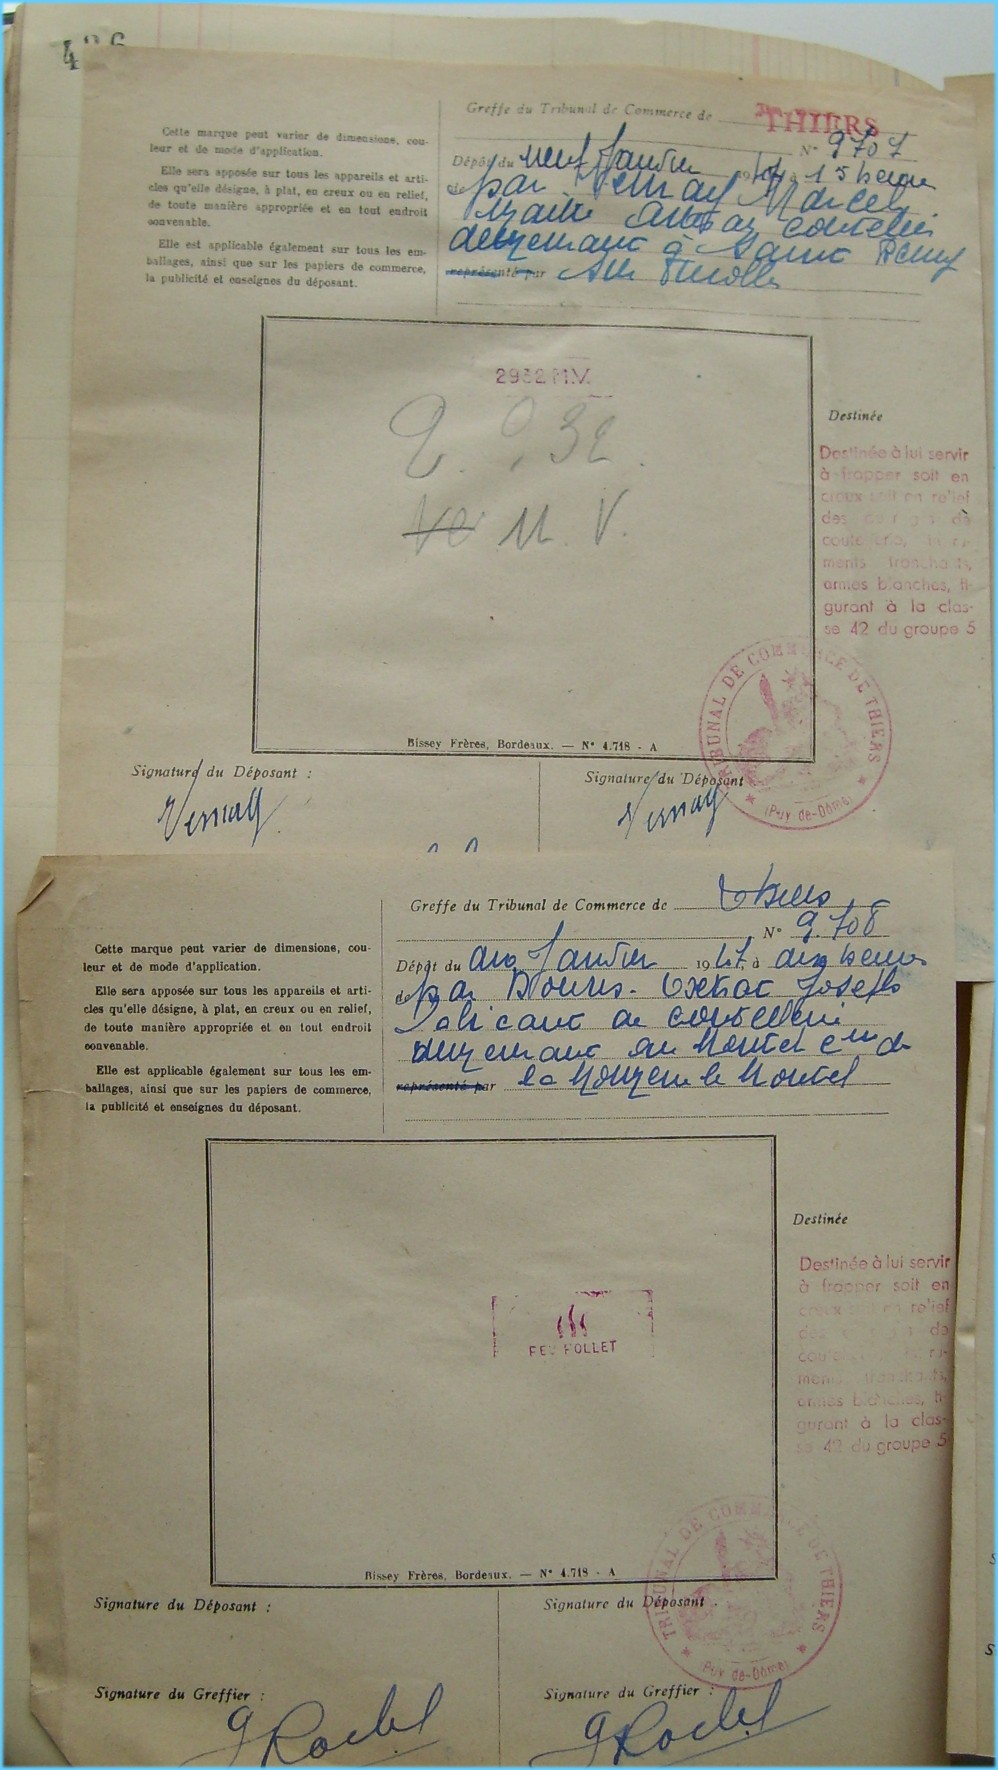 Greffe du Tribunal de Commerce de THIERS
N° 9707
Cette marque peut varier de dimensions, cou-
leur et de mode d'application.
Elle sera apposée sur tous les appareils et arti-
cles qu'elle désigne, à plat, en creux ou en relief,
de toute manière appropriée et en tout endroit
convenable.
Elle est applicable également sur tous les em-
ballages, ainsi que sur les papiers de commerce,
la publicité et enseignes du déposant.
Dépôt du neuf Janvier 1947 à 15 heures
de par Marcel
coutelier
demeurant à Saint Remy
représenté par sur Durolle
2932 M.V.
2.932
M. V.
Destinée
Destinée à lui servir
à frapper soit en
creux soit en relief
des de
coutellerie, instru-
ments tranchants,
armes blanches, fi-
gurant à la clas-
se 42 du groupe 5
TRIBUNAL DE COMMERCE DE THIERS
(Puy-de-Dôme)
Bissey Frères, Bordeaux. — N° 4.718 - A
Signature du Déposant :
Signature du Déposant
Greffe du Tribunal de Commerce de Thiers
N° 9.708
Cette marque peut varier de dimensions, cou-
leur et de mode d'application.
Elle sera apposée sur tous les appareils et arti-
cles qu'elle désigne, à plat, en creux ou en relief,
de toute manière appropriée et en tout endroit
convenable.
Elle est applicable également sur tous les em-
ballages, ainsi que sur les papiers de commerce,
la publicité et enseignes du déposant.
Dépôt du dix Janvier 1947 à dix heures
de par Joseph
Fabricant de coutellerie
demeurant au Montel cne de
représenté par la Monnerie le Montel
Destinée
Destinée à lui servir
à frapper soit en
creux soit en relief
des de
coutellerie, instru-
ments tranchants,
armes blanches, fi-
gurant à la clas-
se 42 du groupe 5
FEU FOLLET
TRIBUNAL DE COMMERCE DE THIERS
(Puy-de-Dôme)
Bissey Frères, Bordeaux. — N° 4.718 - A
Signature du Déposant :
Signature du Déposant :
Signature du Greffier :
Signature du Greffier :